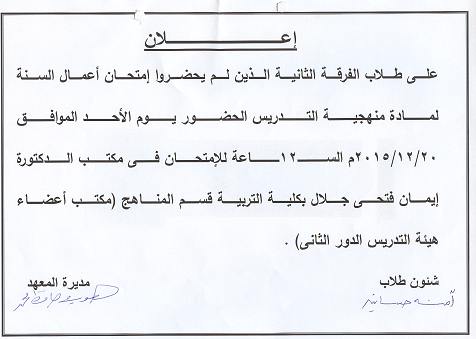 إعـــــــلان
على طلاب الفرقة الثانية الذين لم يحضروا إمتحان أعمال السنة
لمــادة منهجية التــدريس الحضــور يــوم الأحــد الموافــق
٢٠١٥/١٢/٢٠م الســـ١٢ــاعة للإمتحان فى مكتب الــدكتورة
إيمان فتحى جلال بكلية التربية قسم المناهج (مكتب أعضــاء
هيئة التدريس الدور الثانى) .
شئون طلاب
مديرة المعهد
آمنه حسانين